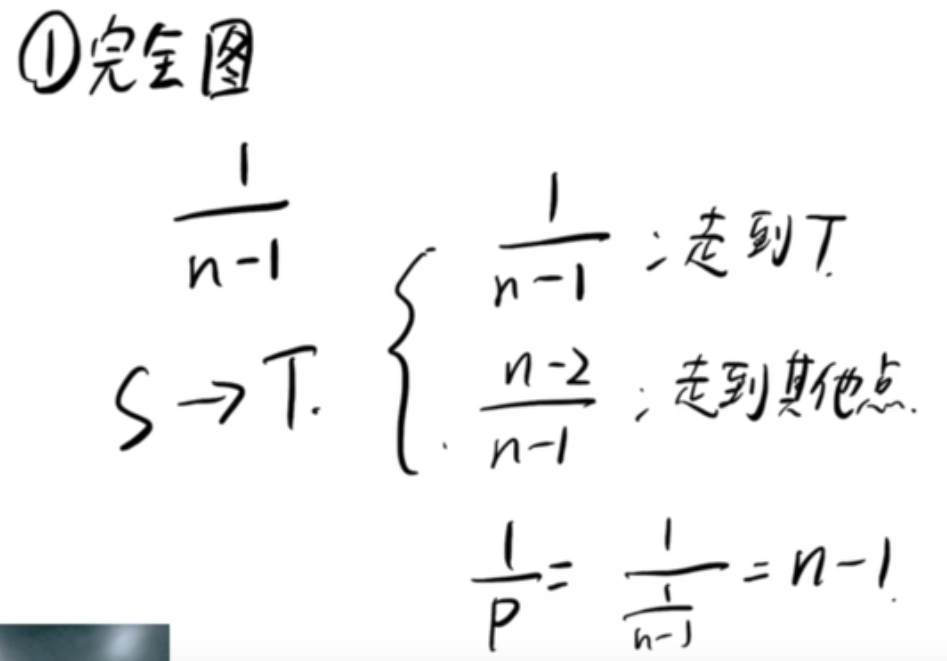 ①完全图
1/(n-1)
1/(n-1) : 走到T.
S→T. { (n-2)/(n-1) : 走到其他点.
1/P = 1/(1/(n-1)) = n-1.